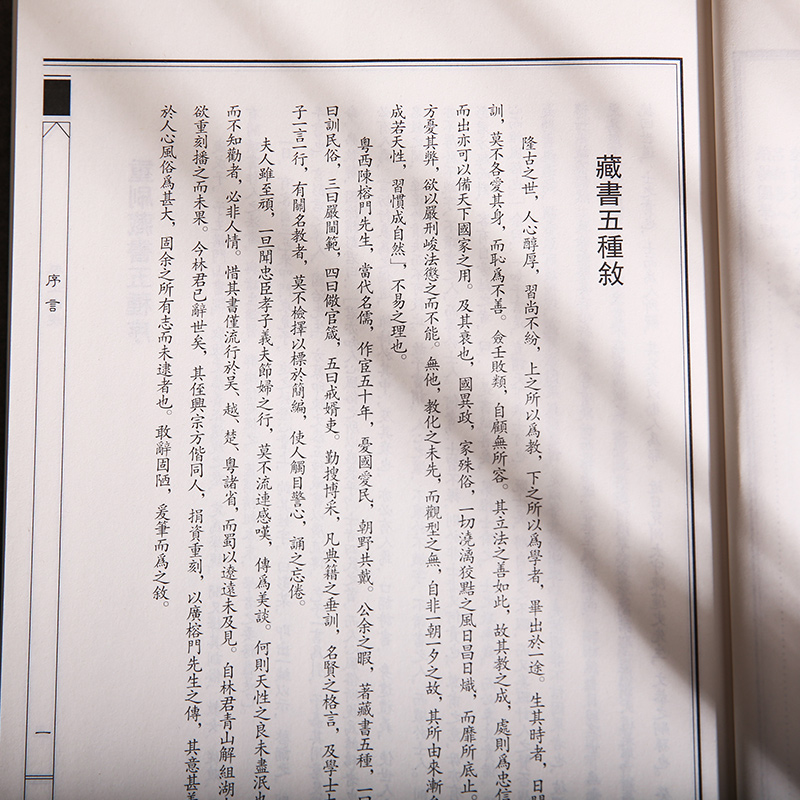 藏書五種敘
隆古之世，人心醇厚，習尚不紛，上之所以爲教，下之所以爲學者，畢出於一途。生其時者，日聞
訓，莫不各愛其身，而恥爲不善。僉壬敗類，自顧無所容。其立法之善如此，故其教之成，處則爲忠信
而出亦可以備天下國家之用。及其衰也，國異政，家殊俗，一切澆漓狡黠之風日昌日熾，而靡所底止。
方憂其弊，欲以嚴刑峻法懲之而不能。無他，教化之未先，而觀型之無，自非一朝一夕之故，其所由來漸
成若天性，習慣成自然」，不易之理也。
粵西陳榕門先生，當代名儒，作宦五十年，憂國愛民，朝野共戴。公余之暇，著藏書五種，一曰
曰訓民俗，三曰嚴閫範，四曰儆官箴，五曰戒婿吏。勤搜博采，凡典籍之垂訓，名賢之格言，及學士
子一言一行，有關名教者，莫不檢擇以標於簡編，使人觸目警心，誦之忘倦。
夫人雖至頑，一旦聞忠臣孝子義夫節婦之行，莫不流連感嘆，傳爲美談。何則天性之良未盡泯
而不知勸者，必非人情。惜其書僅流行於吴、越、楚、粵諸省，而蜀以遼遠未及見。自林君青山解組湖
欲重刻播之而未果。今林君已辭世矣，其侄興宗方偕同人，捐資重刻，以廣榕門先生之傳，其意甚美
於人心風俗爲甚大，固余之所有志而未逮者也。敢辭固陋，爰筆而爲之敘。
序言
一